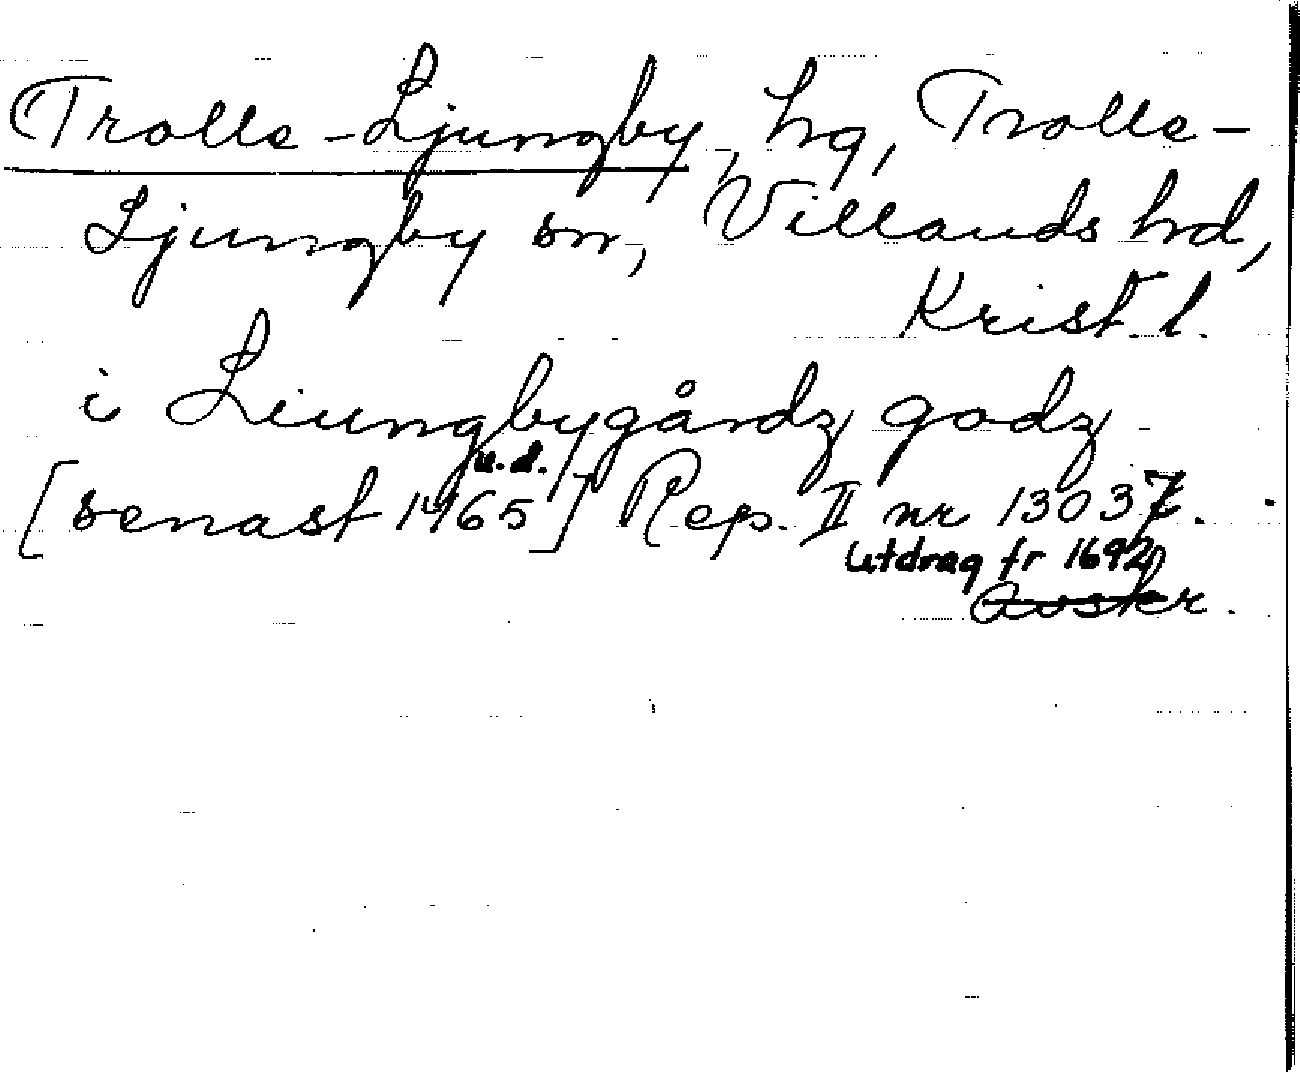 Trolle-Ljungby, hg, Trolle-
Ljungby sn, Villands hd,
Krist. l.
i Liungbygårdz godz
u.d.
[senast 1465] Rep. II nr 13037.
utdrag fr 1692
Avskr.